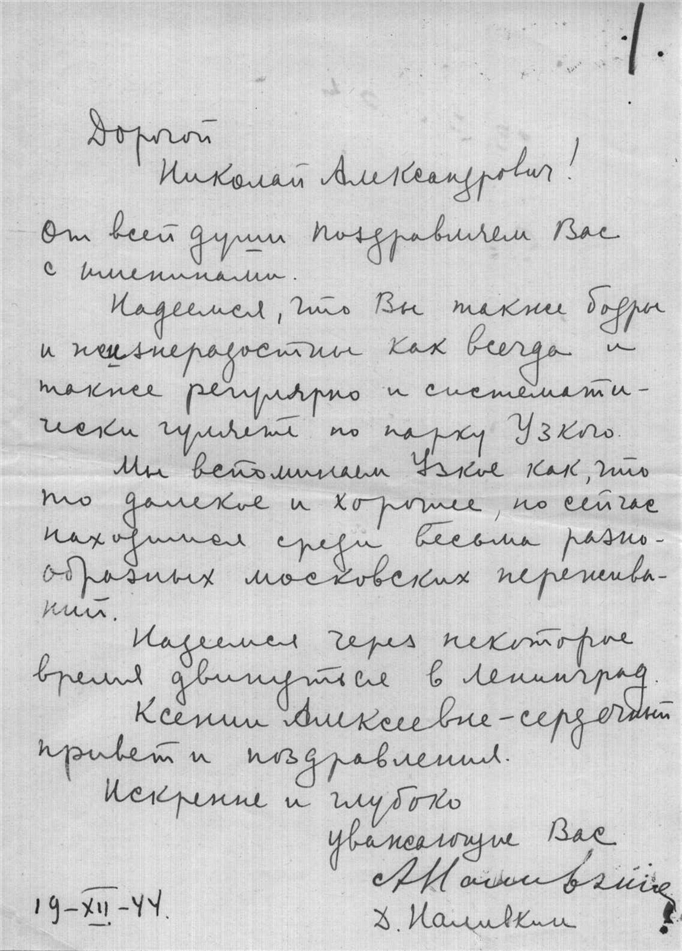 Дорогой
Николай Александрович!
От всей души поздравляем Вас
с именинами.
Надеемся, что Вы также бодры
и жизнерадостны как всегда и
также регулярно и системати-
чески гуляете по парку Узкого.
Мы вспоминаем Узкое как, что
то далекое и хорошее, но сейчас
находимся среди весьма разно-
образных московских пережива-
ний.
Надеемся через некоторое
время двинуться в Ленинград.
Ксении Алексеевне - сердечный
привет и поздравления.
Искренне и глубоко
уважающие Вас
Д. Наливкин
19-XII-44.